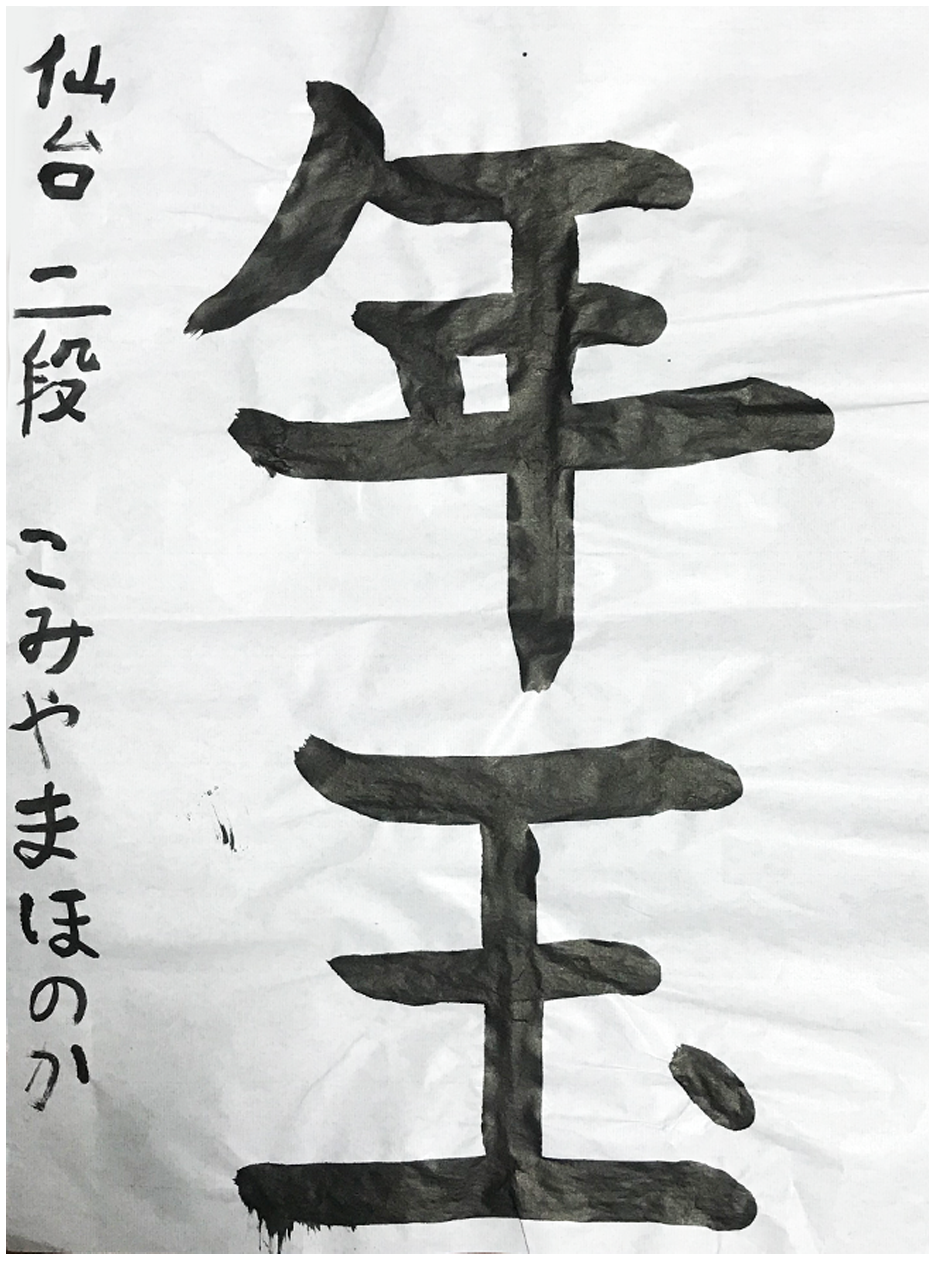 年玉
仙台 二段 こみやまほのか